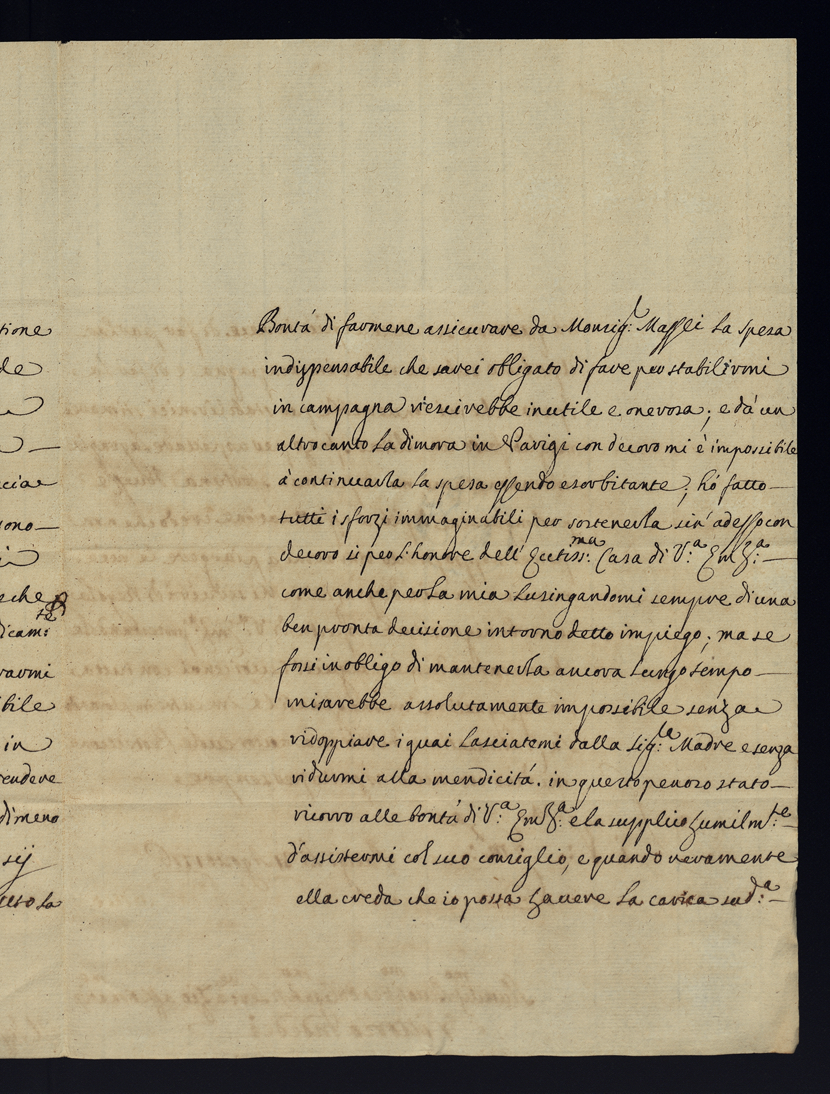 tione
de
a
a —
ccia
sono—
i
sche
dicam:te
rarmi
bile
in
rendere
dimeno
sij
esto la
Bontá di farmene assicurare da Monsig:r Massei la spesa
indispensabile che sarei obligato di fare per stabilirmi
in campagna riescirebbe inutile e onerosa; e dà un
altro canto la dimora in Parigi con decoro mi è impossibile
à continuarla la spesa essendo esorbitante, hó fatto—
tutti i sforzi immaginabili per sostenerla sin' adesso con
decoro si per l'honore dell' Ecctiss:ma Casa di V:a Em̃za:—
come anche per la mia lusingandomi sempre di una
ben pronta decisione intorno detto impiego; ma se
fossi in obligo di mantenerla ancora lungo tempo—
mi sarebbe assolutamente impossibile senza
ridoppiare i guai lasciatemi dalla Sig:la Madre e senza
ridurmi alla mendicitá. in questo penoso stato—
ricorro alle bontá di V:a Em̃za: e la supplico humilm:te—
d'assistermi col suo consiglio, e quando veramente
ella creda che io possa havere la carica sud:a—